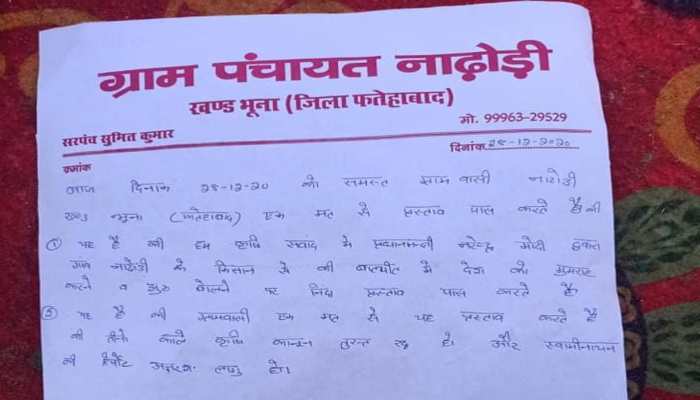 ग्राम पंचायत नाढ़ोड़ी
खण्ड भूना (जिला फतेहाबाद)
मो. 99963-29529
सरपंच सुमित कुमार
क्रमांक
दिनांक 28-12-2020
आज दिनांक 28-12-20 को समस्त ग्राम वासी नाढोडी
खण्ड भुना (फतेहाबाद) एक मत से प्रस्ताव पास करते है की
① यह है की हम कृषि संवाद में प्रधानमन्त्री नरेन्द्र मोदी द्वारा
ग्राम नाढोडी के किसान से की बातचीत में देश को गुमराह
करने व झुठ बोलने पर निंदा प्रस्ताव पास करते है
② यह है की ग्रामवासी एक मत से यह प्रस्ताव करते है
की तीनो काले कृषि कानून तुरन्त रद्द हो और स्वामीनाथन
की रिपोर्ट अक्षरश: लागु हो।